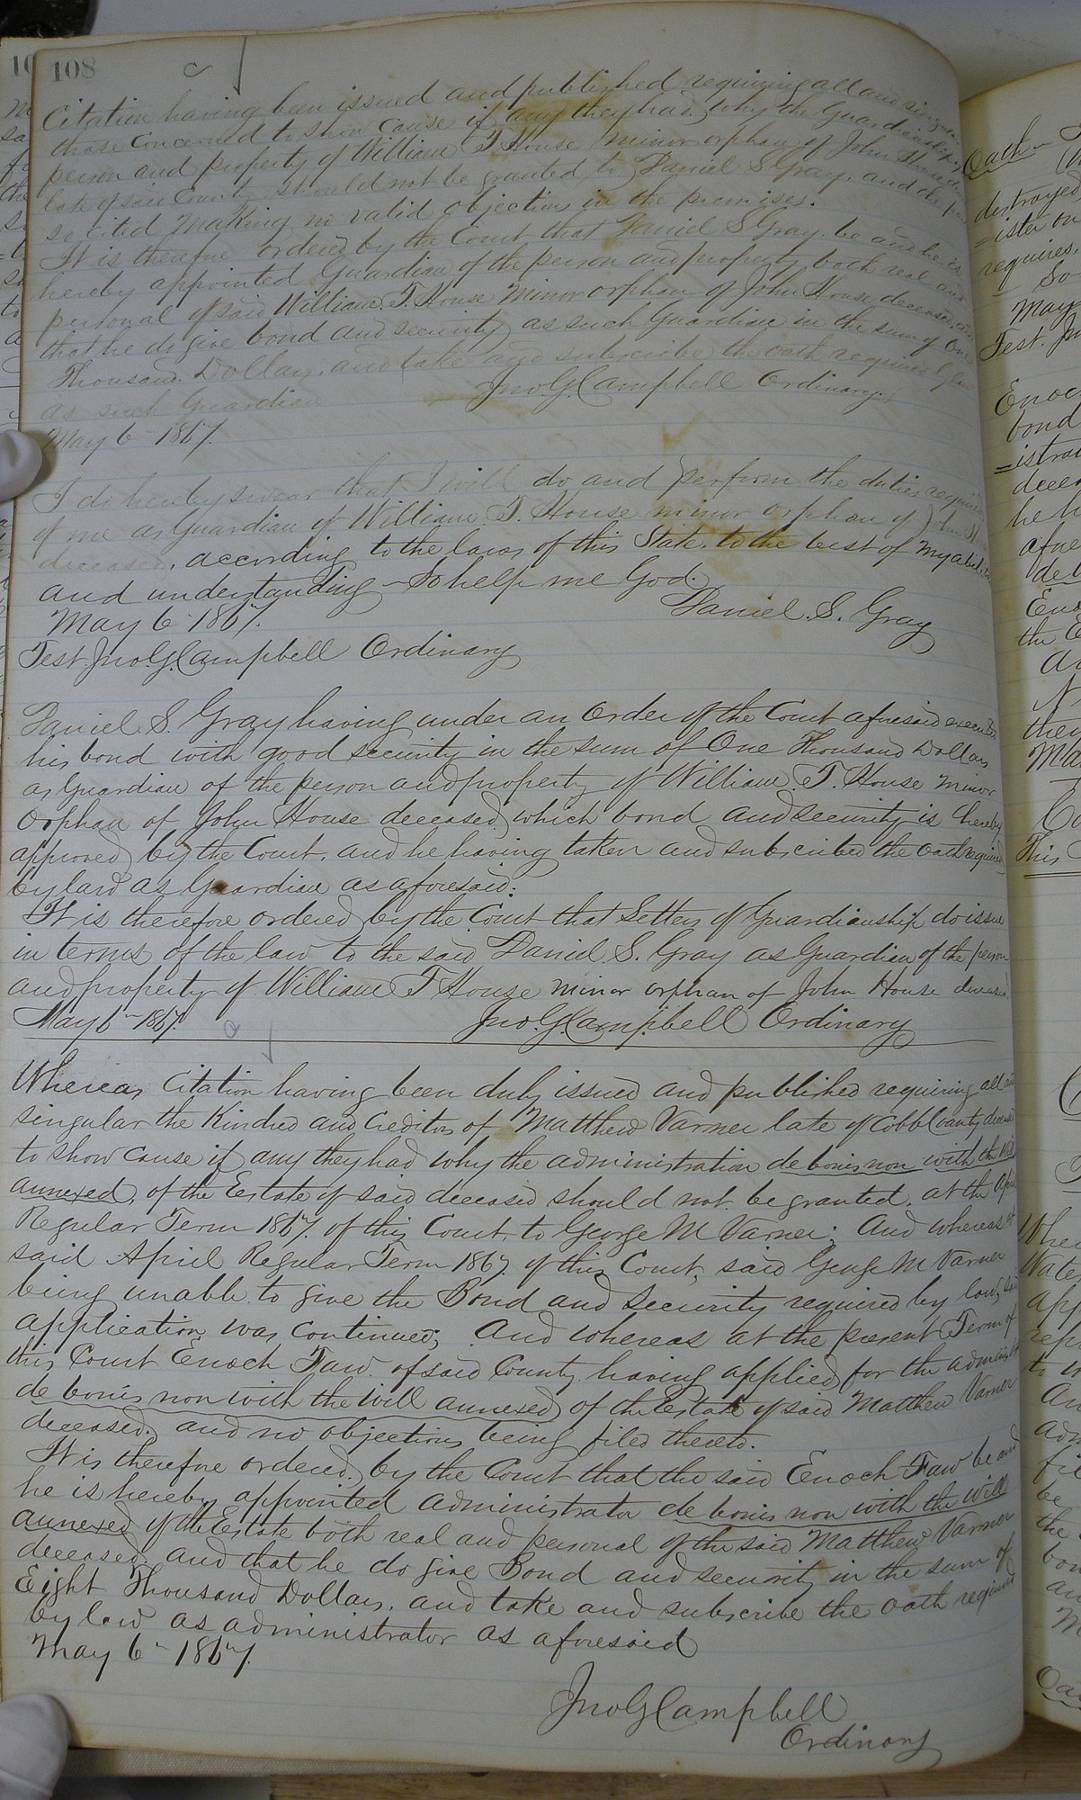 108
Citation having been issued and published requiring all and singular
those concerned to show cause if any they had, why the Guardianship
person and property of William T. House minor orphan of John House
late of said County should not be granted to Daniel S Gray. and the
so cited making no valid objection in the premises.
It is therefore ordered by the Court that Daniel S Gray. be and he is
hereby appointed Guardian of the person and property both real and
personal of said William. T. House Minor orphan of John House deceased.
that he do give bond and security as such Guardian in the sum of One
Thousand Dollars. and take and subscribe the oath required by law
as such Guardian
Jno. G. Campbell Ordinary.
May 6 1867.
I do hereby swear that I will do and perform the duties required
of me as Guardian of William. T. House minor orphan of John H
deceased, according to the laws of this State. to the best of my abilities
and understanding - So help me God.
May 6 1867. Daniel. S. Gray
Test. Jno. G. Campbell Ordinary
Daniel. S. Gray having under an order of the Court aforesaid executed
his bond with good security in the sum of One Thousand Dollars
as Guardian of the person and property of William. T. House minor
orphan of John House deceased, which bond and security is hereby
approved by the Court. and he having taken and subscribed the oath required
by law as Guardian as aforesaid:
It is therefore ordered by the Court that Letters of Guardianship do issue
in terms of the law to the said Daniel. S. Gray as Guardian of the person
and property of William T House minor orphan of John House deceased
May 6" 1867. Jno. G. Campbell Ordinary
Whereas Citation having been duly issued and published requiring all and
singular the Kindred and Creditors of Matthew Varner late of Cobb County deceased
to show cause if any they had why the administration de bonis non with the will
annexed, of the Estate of said deceased should not be granted. at the April
Regular Term 1867. of this Court to George M Varner; And whereas at
said April Regular Term 1867. of this Court, said George M Varner
being unable to give the Bond and security required by law, said
application was continued; And whereas at the present Term of
this Court Enoch Faw. of said County having applied for the administ
de bonis non with the will annexed of the Estate of said Matthew Varner
deceased. and no objections being filed thereto.
It is therefore ordered. by the Court that the said Enoch Faw be and
he is hereby appointed administrator de bonis non with the will
annexed of the Estate both real and personal of the said Matthew Varner
deceased. and that he do give Bond and security in the sum of
Eight Thousand Dollars. and take and subscribe the oath required
by law as administrator as aforesaid
May 6" 1867.
Jno G Campbell
Ordinary
Oath
destroyed
requires,
So
May
Test. Jn
Enoch
bond
=istra
decea
he h
the E
they
This